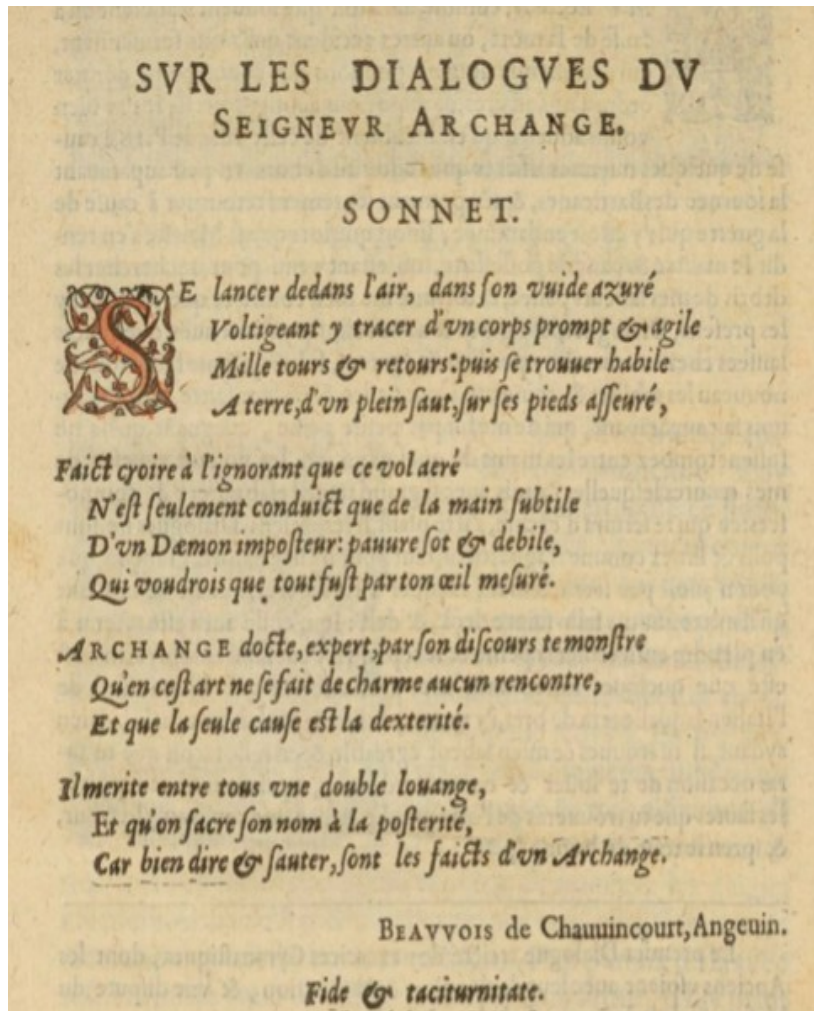 SVR LES DIALOGVES DV
SEIGNEVR ARCHANGE.
SONNET.
SE lancer dedans l'air, dans ſon vuide azuré
Voltigeant y tracer d'vn corps prompt & agile
Mille tours & retours: puis ſe trouuer habile
A terre, d'vn plein ſaut, ſur ſes pieds aſſeuré,
Faict croire à l'ignorant que ce vol aeré
N'eſt ſeulement conduict que de la main ſubtile
D'vn Dæmon impoſteur: pauure ſot & debile,
Qui voudrois que tout fuſt par ton œil meſuré.
ARCHANGE docte, expert, par ſon diſcours te monſtre
Qu'en ceſt art ne ſe fait de charme aucun rencontre,
Et que la ſeule cauſe eſt la dexterité.
Il merite entre tous vne double louange,
Et qu'on ſacre ſon nom à la poſterité,
Car bien dire & ſauter, ſont les faicts d'vn Archange.
BEAVVOIS de Chauuincourt, Angeuin.
Fide & taciturnitate.